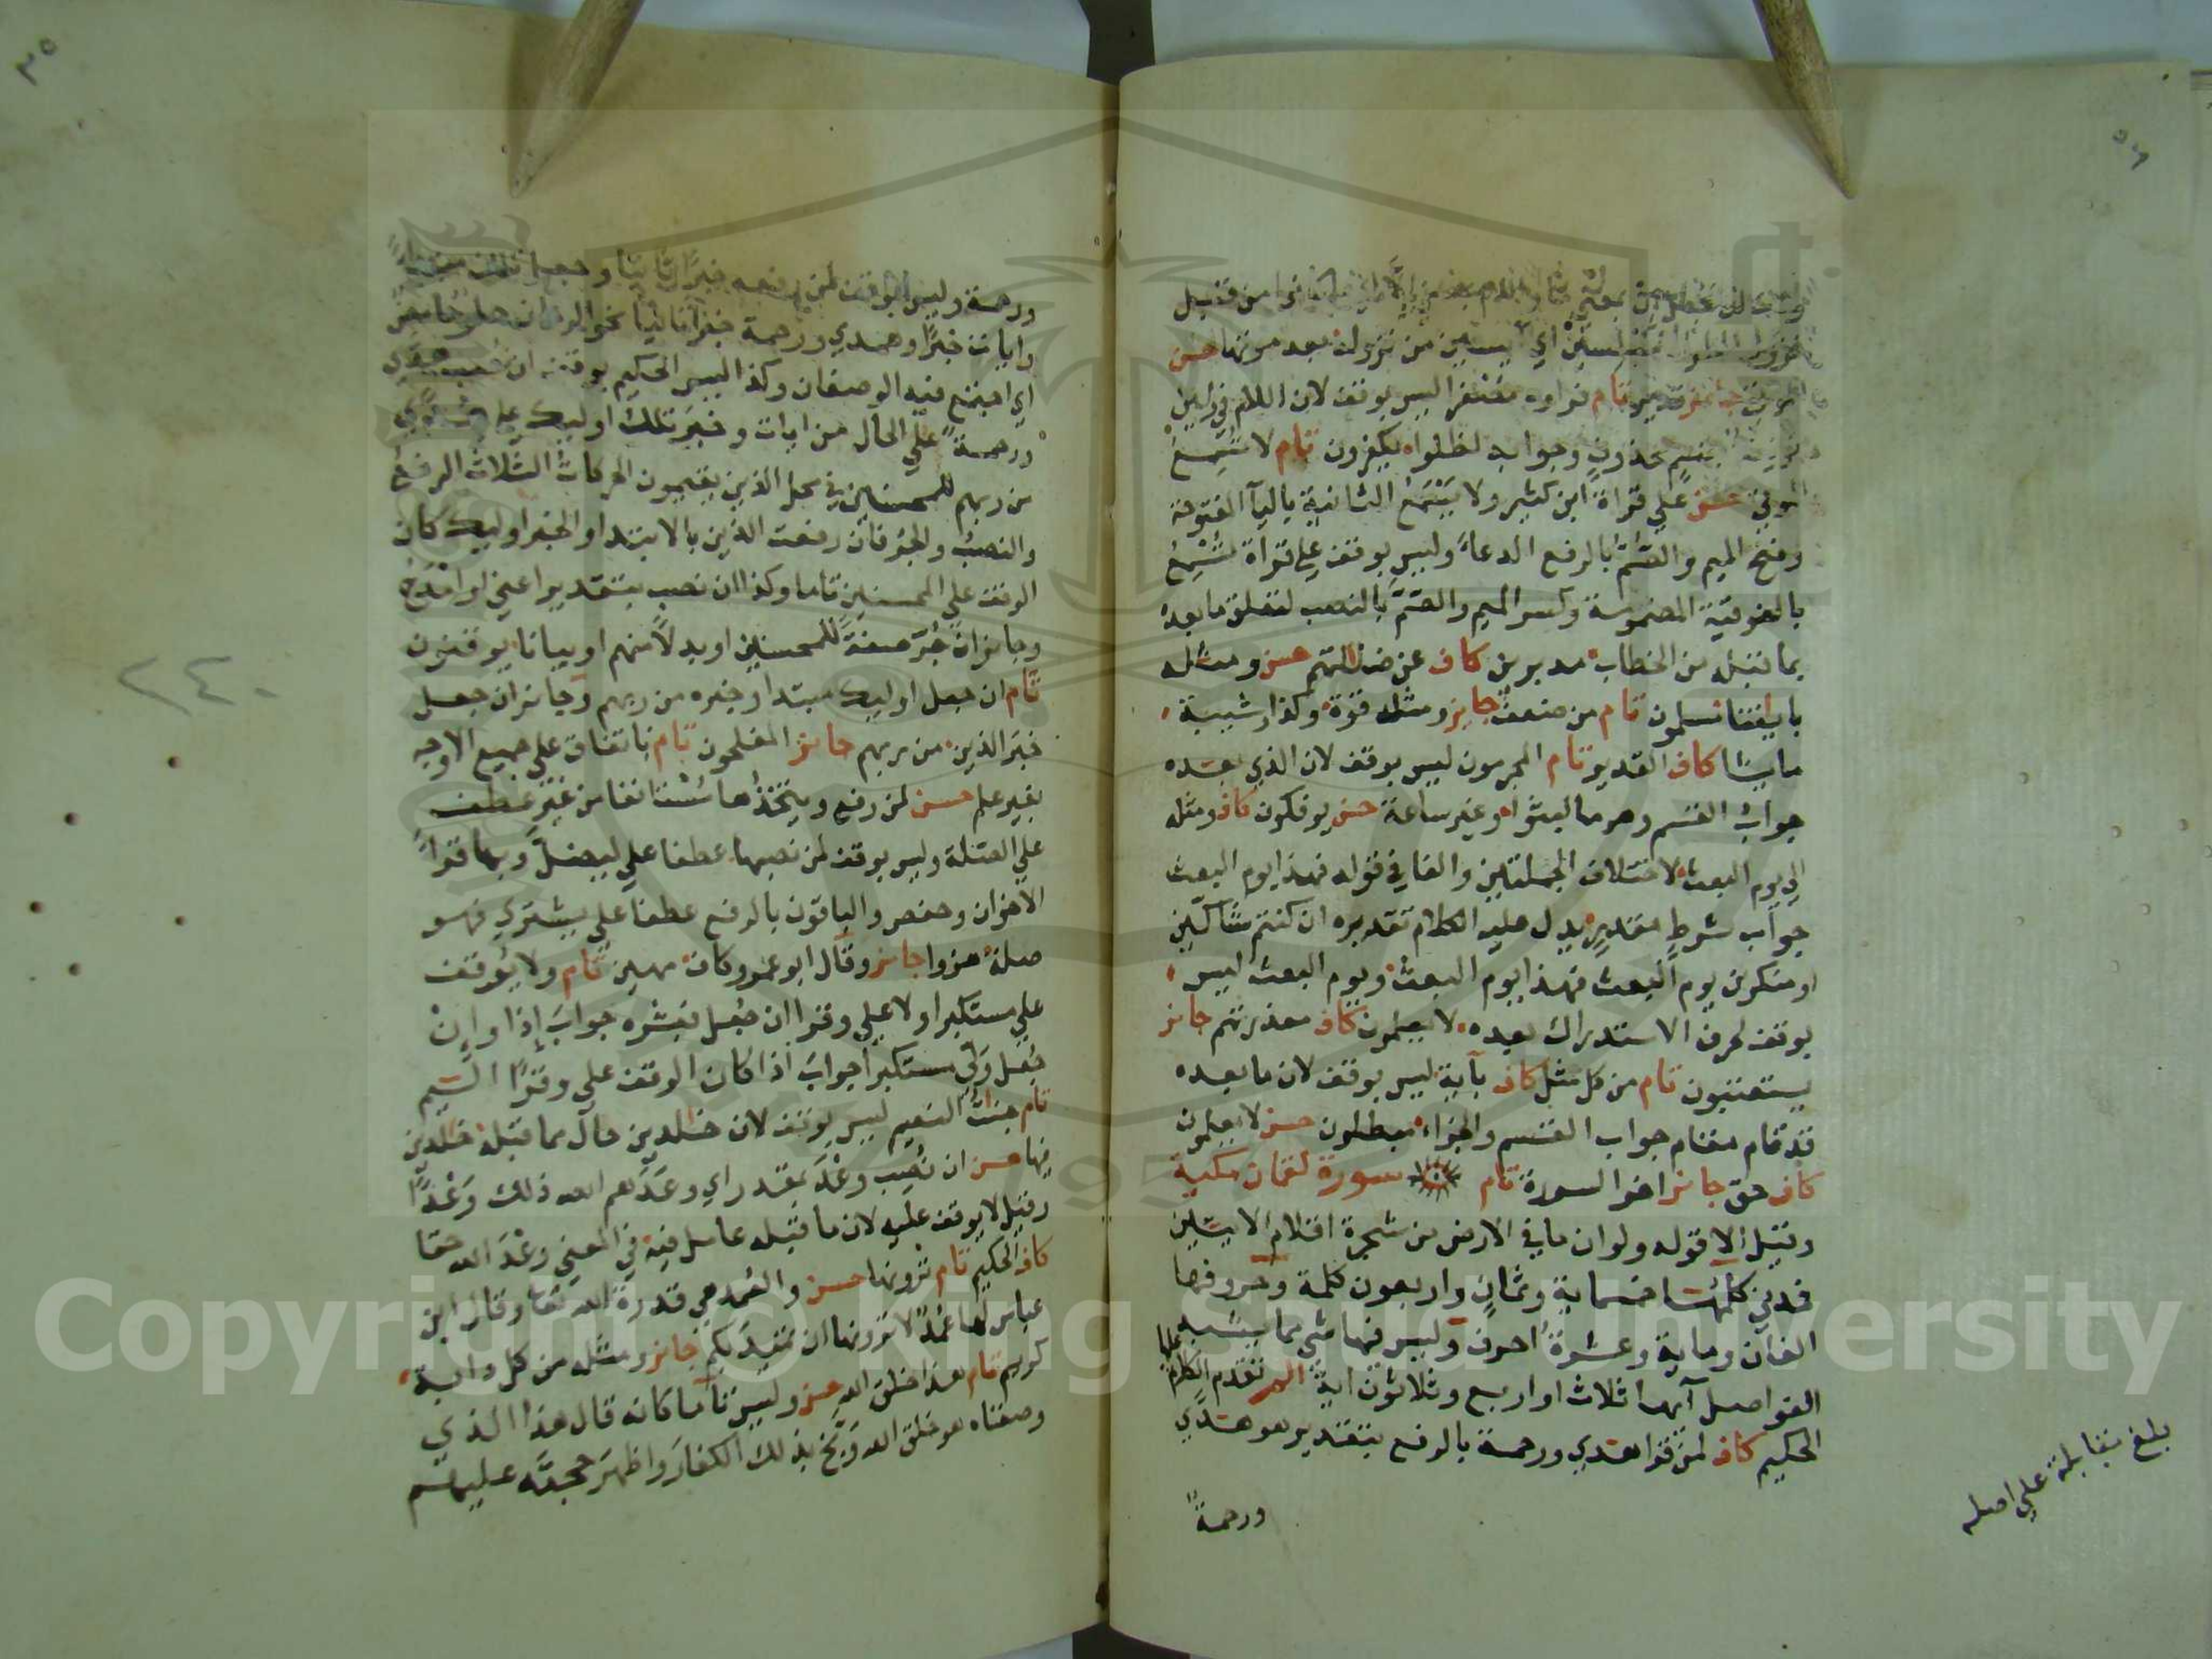 قبيل
لمبلسين اي آيسين من نزوله بعد موتها حسن
الموتي جايز قدير تام فراوه مصفرا ليس بوقف لان اللام في ولين
قسم محذوف وجوابه لظلوا يكفرون تام لا تسمع
الموتي حسن علي قراة ابن كثير ولا يسمع الثانية باليآ المفتوحة
وفتح الميم والصم بالرفع الدعآء وليس بوقف علي قراة تسمع
بالفوقية المضمومة وكسر الميم والصم بالنصب لتعلق ما بعده
بما قبله من الخطاب مدبرين كاف عن ضلالتهم حسن ومثله
باياتنا مسلمون تام من ضعف جايز ومثله قوة وكذا وشيبة
ما يشا كاف القدير تام المجرمون ليس بوقف لان الذي بعده
جواب القسم وهو ما لبثوا وغير ساعة حسن يوفكون كاف ومثله
الي يوم البعث لاختلاف الجملتين والفا في قوله فهذا يوم البعث
جواب شرط مقدر يدل عليه الكلام تقديره ان كنتم شاكين
او منكرين يوم البعث فهذا يوم البعث ويوم البعث ليس
بوقف لحرف الاستدراك بعده لا يعلمون كاف معذرتهم جايز
يستعتبون تام من كل مثل كاف بآية ليس بوقف لان ما بعده
قد قام مقام جواب القسم والجزاء مبطلون حسن لا يعلمون
كاف حق جايز اخر السورة تام سورة لقمان مكية
وقيل الا قوله ولو ان ما في الارض من شجرة اقلام الايتين
فمدني كلمتها خمسماية وثمان واربعون كلمة وحروفها
الفان وماية وعشرة احرف وليس فيها شي مما يشبه
الفواصل آيها ثلاث او اربع وثلاثون اية الم تقدم الكلام عليها
الحكيم كاف لمن قرا هدي ورحمة بالرفع بتقدير هو هدي
ورحمة
بلغ مقابلة علي اصله
ورحمة وليس بوقف لمن رفعه خبرا ثانيا وجعل تلك مبتدا
وايات خبرا وهدي ورحمة خبرا ثانيا نحو الرمان حلو حامض
اي اجتمع فيه الوصفان وكذا ليس الحكيم بوقف ان نصب هدي
ورحمة علي الحال من ايات وخبر تلك اوليك علي هدي
من ربهم للمحسنين في محل الذين يقيمون الحركات الثلاث الرفع
والنصب والجر فان رفعت الذين بالابتدا والخبر اوليك كان
الوقف علي المحسنين تاما وكذا ان نصب بتقدير اعني او امدح
وجايز ان جر صفة للمحسنين او بدلا منهم او بيانا يوقنون
تام ان جعل اوليك مبتدا وخبره من ربهم وجايز ان جعل
خبر الذين من ربهم جايز المفلحون تام باتفاق علي جميع الاوجه
بغير علم حسن لمن رفع ويتخذها مستانفا من غير عطف
علي الصلة وليس بوقف لمن نصبها عطفا علي ليضل وبها قرا
الاخوان وحفص والباقون بالرفع عطفا علي يشتري فهو
صلة هزوا جايز وقال ابو عمرو كاف مهين تام ولا يوقف
علي مستكبرا ولا علي وقرا ان جعل فبشره جواب اذا وان
جعل ولي مستكبرا جواب اذا كان الوقف علي وقرا اليم
تام جنات النعيم ليس بوقف لان خالدين حال مما قبله خالدين
فيها حسن ان نصب وعد بمقدر اي وعدهم الله ذلك وعدا
وقيل لا يوقف عليه لان ما قبله عامل فيه في المعني وعد الله حقا
كاف الحكيم تام ترونها حسن والعمد هي قدرة الله تعالي وقال ابن
عباس لها عمد لا ترونها ان تميد بكم جايز ومثله من كل دابة
كريم تام هذا خلق الله حسن وليس تاما كانه قال هذا الذي
وصفناه هو خلق الله وبخ بذلك الكفار واظهر حجته عليهم